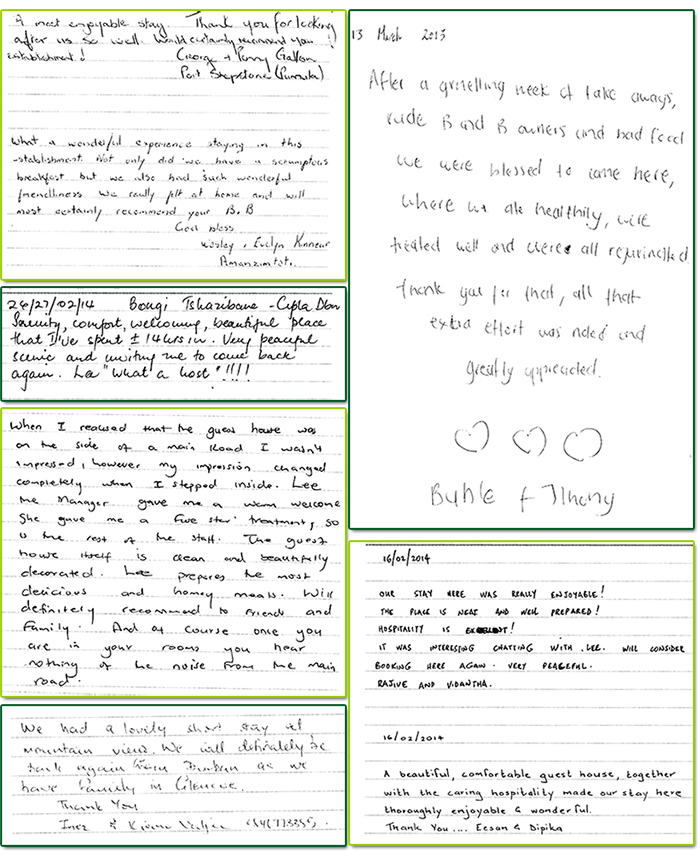 A most enjoyable stay. Thank you for looking
after us so well. Would certainly recommend you
establishment!
George + Penny
Port Shepstone
What a wonderful experience staying in this
establishment. Not only did we have a scrumptous
breakfast but we also had such wonderful
friendliness. We really felt at home and will
most certainly recommend your B.B
God bless
Wesley + Evelyn
Amanzimtoti.
26/27/02/14 Bongi Tshazibane - Cipla Dbn
Serenity, comfort, welcoming, beautiful place
that I've spent ± 14hrs in. Very peaceful
scenic and inviting me to come back
again. Lee "what a host"!!!!
When I realised that the guest house was
on the side of a main Road I wasn't
impressed, however my impression changed
completely when I stepped inside. Lee
the Manager gave me a warm welcome
She gave me a five star treatment, so
is the rest of the staff. The guest
house itself is clean and beautifully
decorated. Lee prepares the most
delicious and homey meals. Will
definitely recommend to friends and
Family. And of course once you
are in your rooms you hear
nothing of the noise from the main
road.
We had a lovely short stay at
mountain view. We will definately be
back again from Durban as we
have family in Glencoe.
Thank You
Inez &
13 March 2013
After a gruelling week of take aways,
rude B and B owners and bad food
we were blessed to come here,
where we ate healthily, were
treated well and were all rejuvinated
thank you for that, all that
extra effort was noted and
greatly appreciated.
Buhle +
16/02/2014
OUR STAY HERE WAS REALLY ENJOYABLE!
THE PLACE IS NEAT AND WELL PREPARED!
HOSPITALITY IS EXCELLENT!
IT WAS INTERESING CHATTING WITH LEE. WILL CONSIDER
BOOKING HERE AGAIN. VERY PEACEFUL.
RAJIVE AND VIDANTHA.
16/02/2014
A beautiful, comfortable guest house, together
with the caring hospitality made our stay here
thoroughly enjoyable & wonderful.
Thank You.... Eesan & Dipika